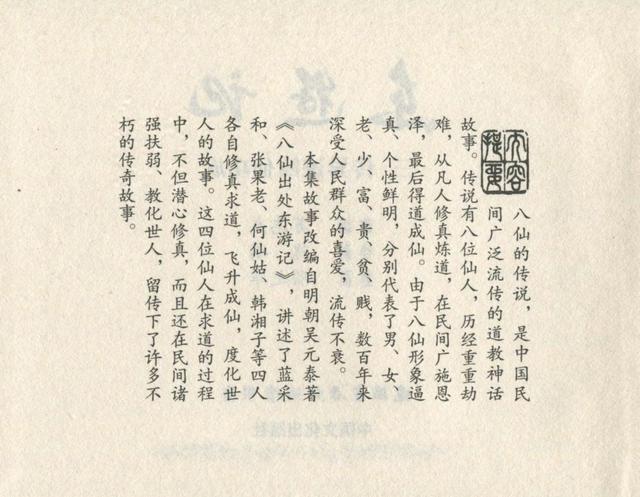 内容提要
八仙的传说，是中国民
间广泛流传的道教神话
故事。传说有八位仙人，历经重重劫
难，从凡人修真炼道，在民间广施恩
泽，最后得道成仙。由于八仙形象逼
真、个性鲜明，分别代表了男、女、
老、少、富、贵、贫、贱，数百年来
深受人民群众的喜爱，流传不衰。
本集故事改编自明朝吴元泰著
《八仙出处东游记》，讲述了蓝采
和、张果老、何仙姑、韩湘子等四人
各自修真求道，飞升成仙，度化世
人的故事。这四位仙人在求道的过程
中，不但潜心修真，而且还在民间诸
强扶弱、教化世人，留传下了许多不
朽的传奇故事。